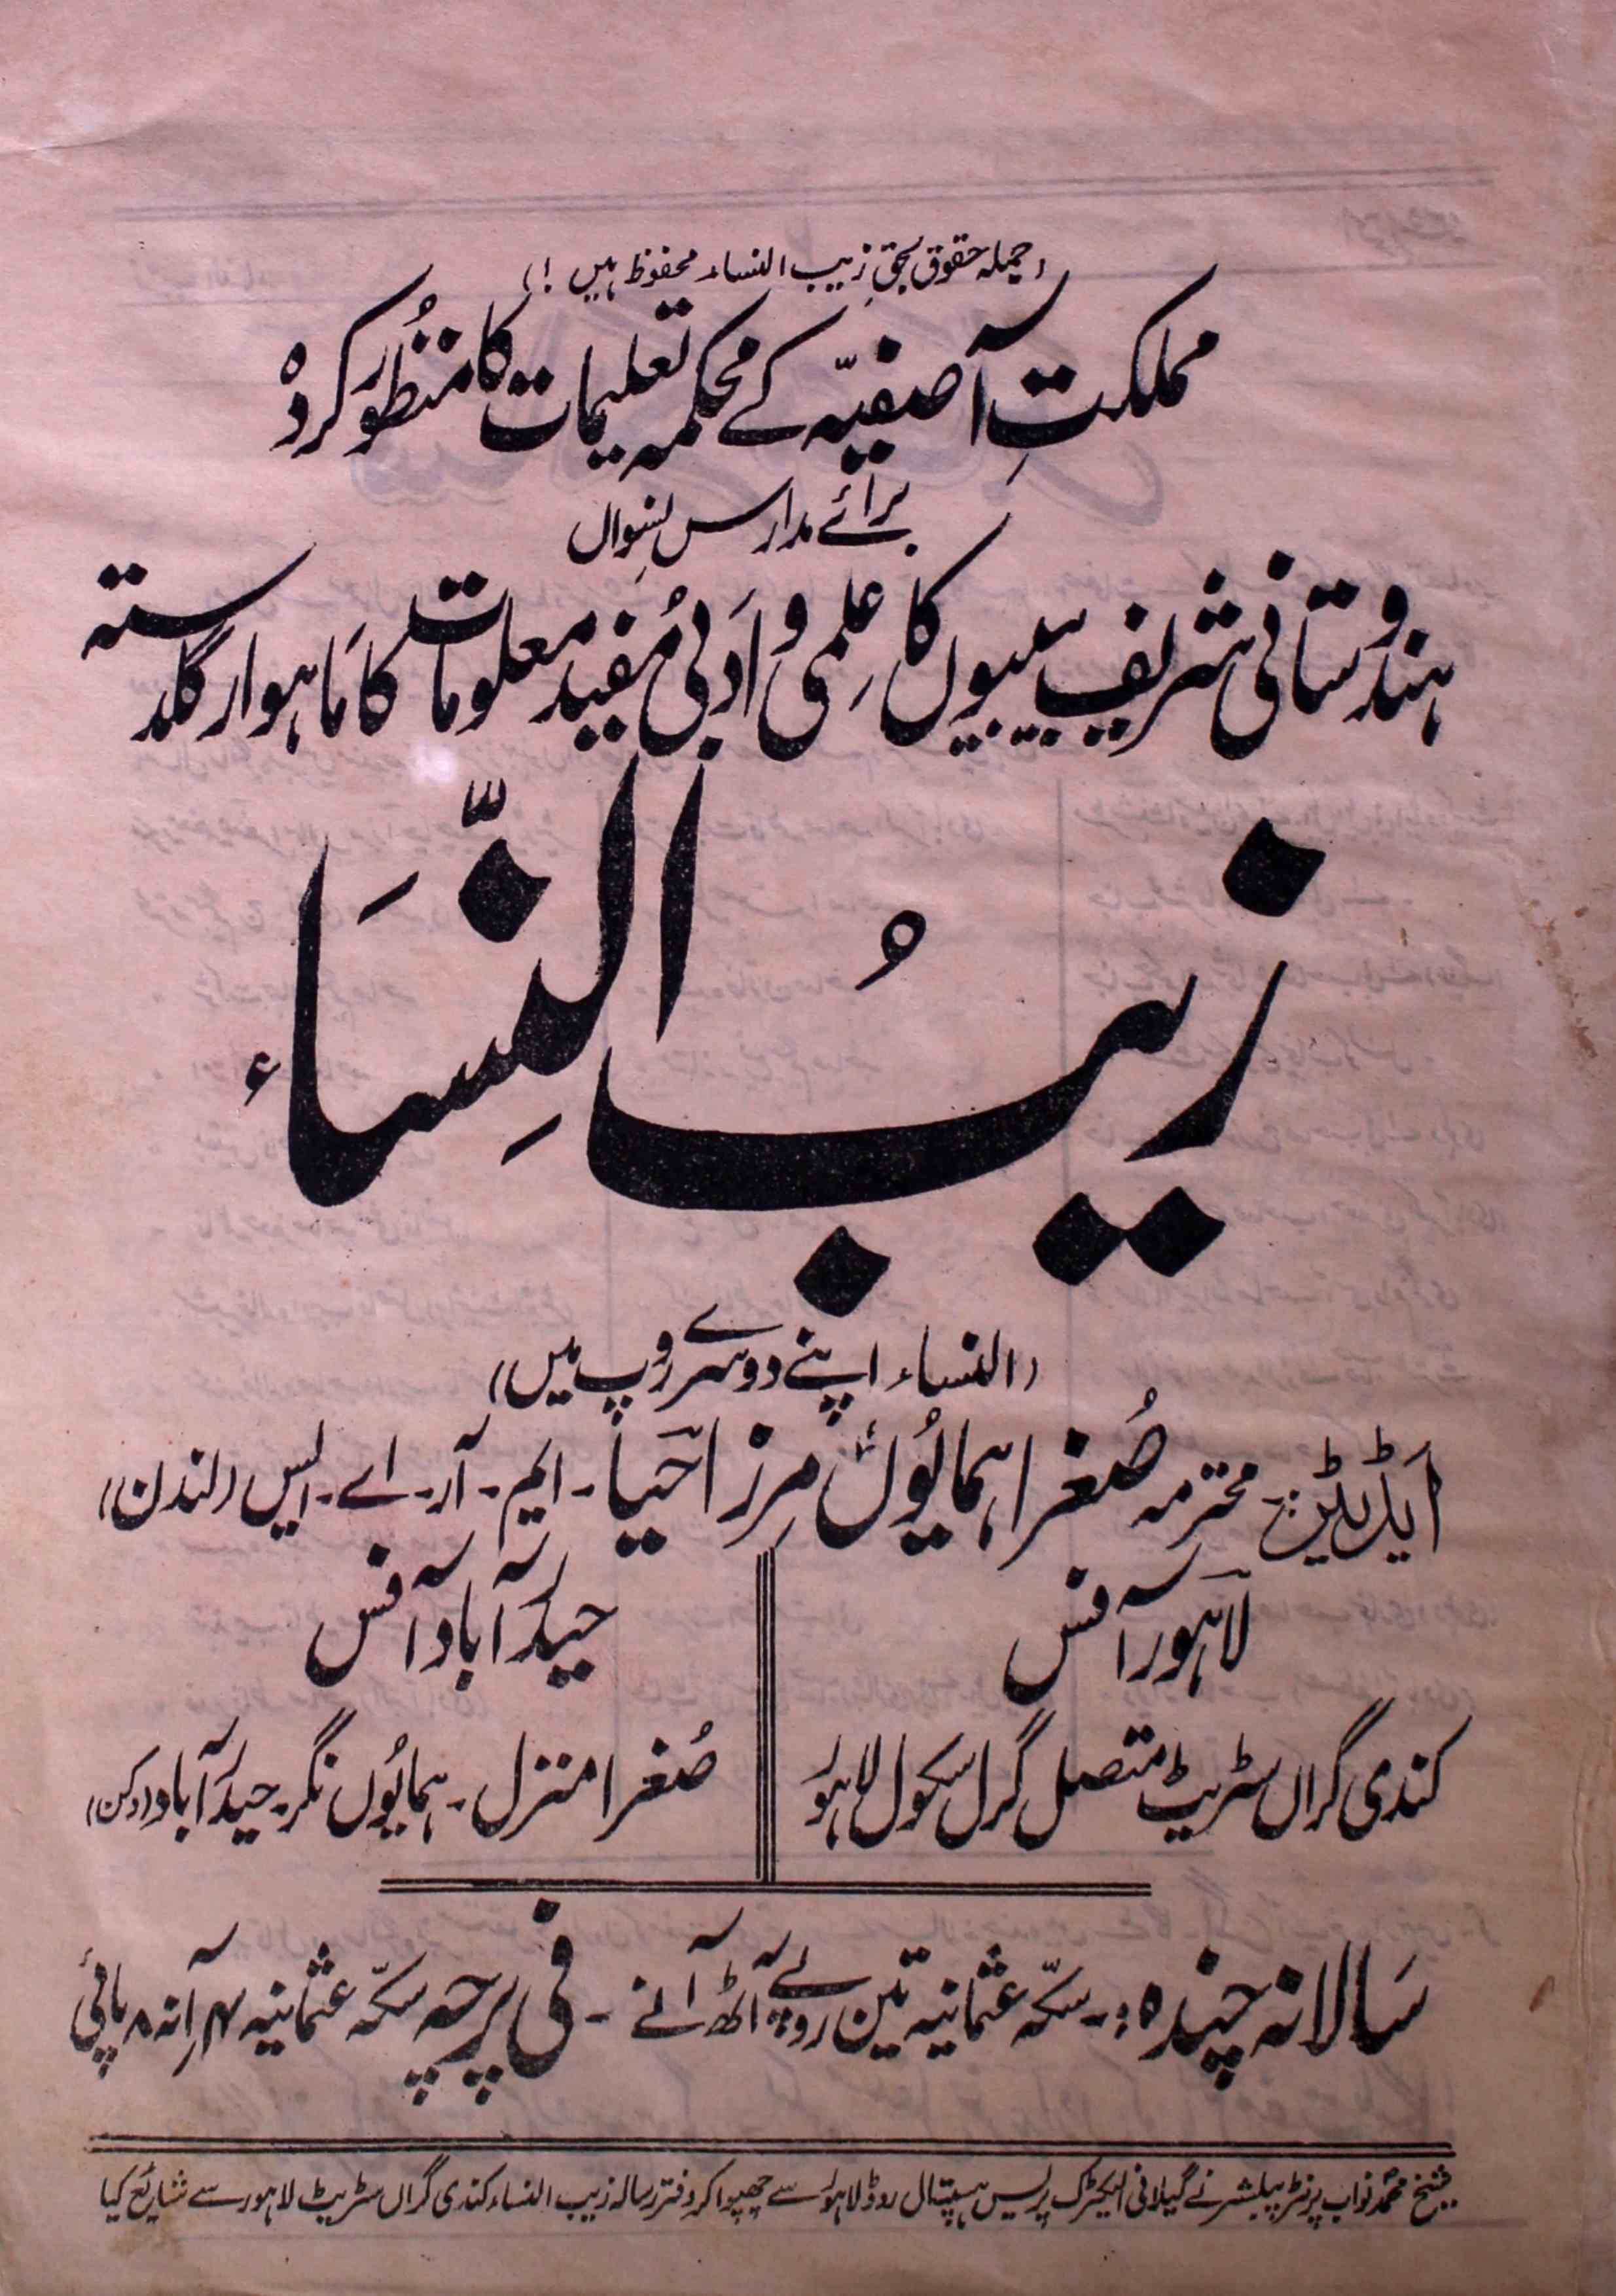 (جملہ حقوق بحقِ زیب النساء محفوظ ہیں!)
مملکتِ آصفیّہ کے محکمہ تعلیمات کا منظُور کردہ
برائے مدارس نِسواں
ہندوستانی شریف بیبیوں کا عِلمی و اَدبی مُفید معلومات کا مَاہوار گلدستہ
زیبُ النِّسَاء
(النساء اپنے دوسرے روپ میں)
ایَڈیٹر:۔ محترمہ صُغرا ہمایُوں مِرزا حَیا۔ ایم۔ آر۔ اے۔ ایس (لندن)
لاہور آفس
کندی گراں سٹریٹ متصل گرل سکول لاہور
حیدرآباد آفس
صُغرا منزل۔ ہمایُوں نگر۔ حیدرآباد (دکن)
سَالانہ چندہ:۔ سکّہ عثمانیہ تین روپے آٹھ آنے ۔ فی پرچہ سکّہ عثمانیہ ۴ آنہ ۸ پائی
شیخ محمد نواب پرنٹر پبلشر نے گیلانی الیکٹرک پریس ہسپتال روڈ لاہور سے چھپوا کر دفتر رسالہ زیب النساء کندی گراں سٹریٹ لاہور سے شائع کیا